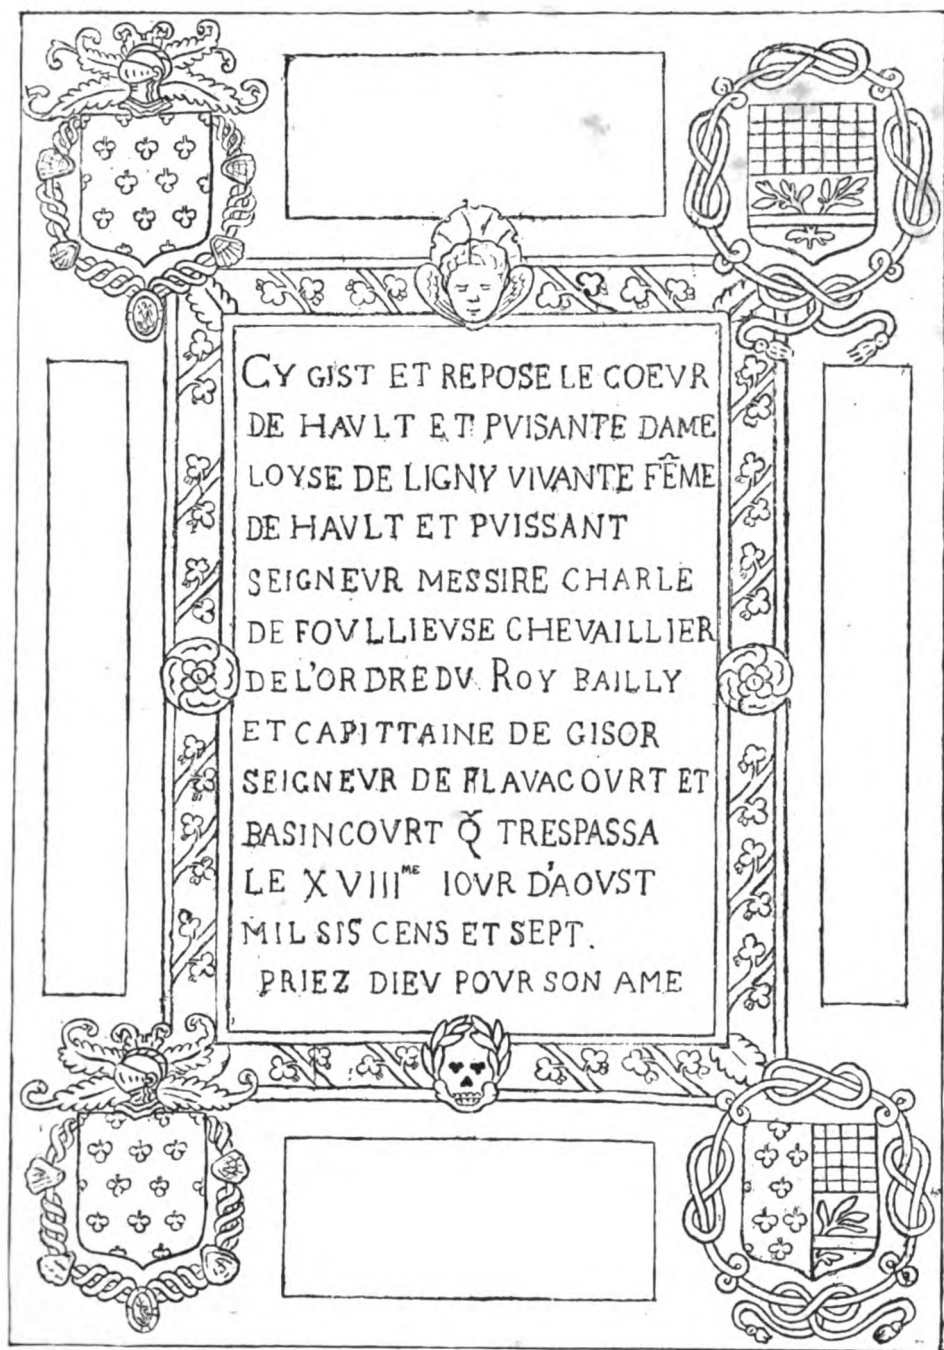 CY GIST ET REPOSE LE COEVR
DE HAVLT ET PVISANTE DAME
LOYSE DE LIGNY VIVANTE FÊME
DE HAVLT ET PVISSANT
SEIGNEVR MESSIRE CHARLE
DE FOVLLIEVSE CHEVAILLIER
DE L'ORDRE DV ROY BAILLY
ET CAPITTAINE DE GISOR
SEIGNEVR DE FLAVACOVRT ET
BASINCOVRT Q̌ TRESPASSA
LE XVIIIᴹᴱ IOVR D'AOVST
MIL SIS CENS ET SEPT.
PRIEZ DIEV POVR SON AME